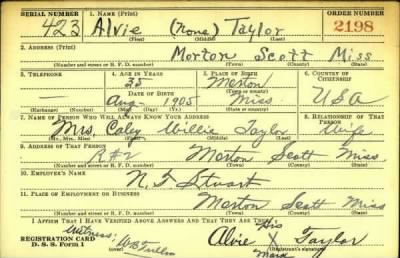 SERIAL NUMBER 1. NAME (Print) ORDER NUMBER
423 Alvie (none) Taylor 2198
(First) (Middle) (Last)
2. ADDRESS (Print)
Morton Scott Miss
(Number and street or R. F. D. number) (Town) (County) (State)
3. TELEPHONE 4. AGE IN YEARS 5. PLACE OF BIRTH 6. COUNTRY OF CITIZENSHIP
35 Morton
DATE OF BIRTH (Town or county)
Aug 1905 Miss USA
(Exchange) (Number) (Mo.) (Day) (Yr.) (State or country)
7. NAME OF PERSON WHO WILL ALWAYS KNOW YOUR ADDRESS 8. RELATIONSHIP OF THAT PERSON
Mrs. Caley Willie Taylor Wife
(Mr., Mrs., Miss) (First) (Middle) (Last)
9. ADDRESS OF THAT PERSON
R#2 Morton Scott Miss.
(Number and street or R. F. D. number) (Town) (County) (State)
10. EMPLOYER'S NAME
Stuart
11. PLACE OF EMPLOYMENT OR BUSINESS
Morton Scott Miss
(Number and street or R. F. D. number) (Town) (County) (State)
I AFFIRM THAT I HAVE VERIFIED ABOVE ANSWERS AND THAT THEY ARE TRUE.
Witness: His
REGISTRATION CARD Alvie X Taylor
D. S. S. Form 1 Mark (Registrant's signature)